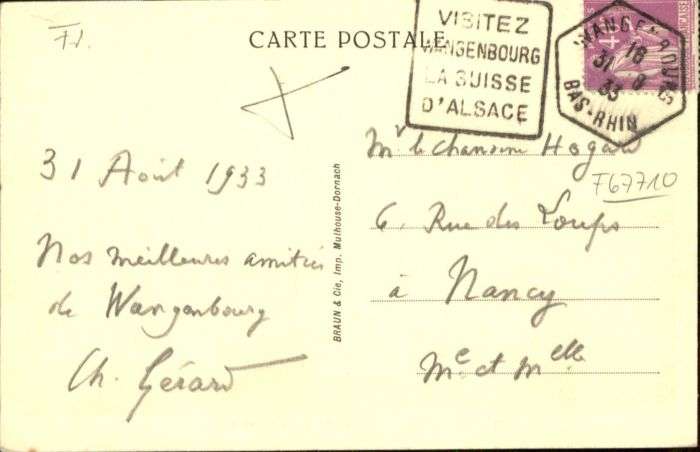 F1.
CARTE POSTALE
VISITEZ
WANGENBOURG
LA SUISSE
D'ALSACE
WANGENBOURG
18
31 - 8
33
BAS-RHIN
31 Août 1933
Nos meilleures amitiés
de Wangenbourg
Ch. Gérard
BRAUN & Cie, Imp. Mulhouse-Dornach
Mr le chanoine Hogard
F67710
6, Rue des Loups
à Nancy
Me et Melle